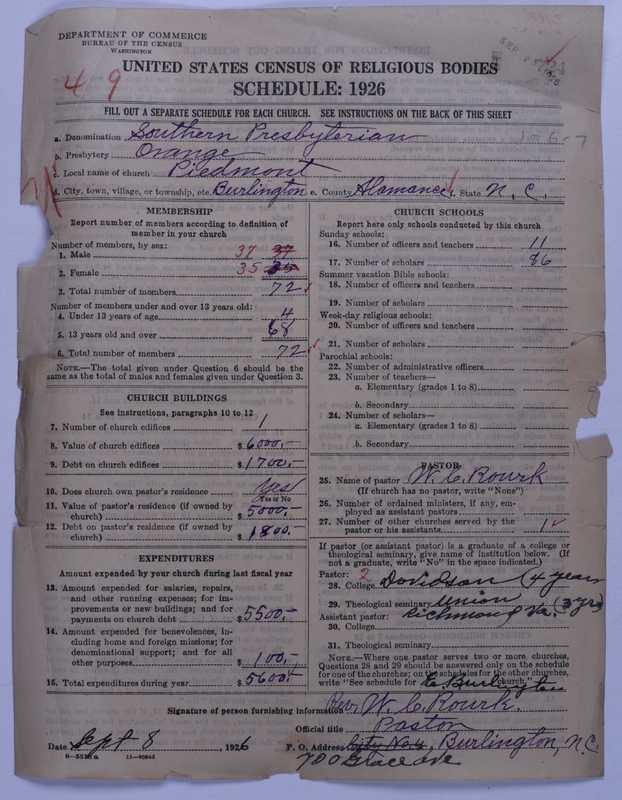 DEPARTMENT OF COMMERCE
BUREAU OF THE CENSUS
WASHINGTON
4 9
SEP
UNITED STATES CENSUS OF RELIGIOUS BODIES
SCHEDULE: 1926
FILL OUT A SEPARATE SCHEDULE FOR EACH CHURCH. SEE INSTRUCTIONS ON THE BACK OF THIS SHEET
a. Denomination Southern Presbyterian
b. Presbytery Orange
c. Local name of church Piedmont
d. City, town, village, or township, etc. Burlington e. County Alamance f. State N. C.
MEMBERSHIP
Report number of members according to definition of
member in your church
Number of members, by sex:
1. Male 37 37
2. Female 35 35
3. Total number of members 72
Number of members under and over 13 years old:
4. Under 13 years of age 4
5. 13 years old and over 68
6. Total number of members 72
NOTE.—The total given under Question 6 should be
same as the total of males and females given under Question 3.
CHURCH BUILDINGS
See instructions, paragraphs 10 to 12
7. Number of church edifices 1
8. Value of church edifices $ 6000,-
9. Debt on church edifices $ 1700,-
10. Does church own pastor's residence yes
Yes or No
11. Value of pastor's residence (if owned by
church) $ 5000,-
12. Debt on pastor's residence (if owned by
church) $ 1800,-
EXPENDITURES
Amount expended by your church during last fiscal year
13. Amount expended for salaries, repairs,
and other running expenses; for im-
provements or new buildings; and for
payments on church debt $ 5500,-
14. Amount expended for benevolences, in-
cluding home and foreign missions; for
denominational support; and for all
other purposes $ 100,-
15. Total expenditures during year $ 5600
CHURCH SCHOOLS
Report here only schools conducted by this church
Sunday schools:
16. Number of officers and teachers 11
17. Number of scholars 86
Summer vacation Bible schools:
18. Number of officers and teachers
19. Number of scholars
Week-day religious schools:
20. Number of officers and teachers
21. Number of scholars
Parochial schools:
22. Number of administrative officers
23. Number of teachers—
a. Elementary (grades 1 to 8)
b. Secondary
24. Number of scholars—
a. Elementary (grades 1 to 8)
b. Secondary
PASTOR
25. Name of pastor W. C. Rourk
(If church has no pastor, write "None")
26. Number of ordained ministers, if any, em-
ployed as assistant pastors
27. Number of other churches served by the
pastor or his assistants 1
If pastor (or assistant pastor) is a graduate of a college or
theological seminary, give name of institution below. (If
not a graduate, write "No" in the space indicated.)
Pastor: 2
28. College Davidson (4 years
29. Theological seminary Union (3 yrs)
Assistant pastor: Richmond Va.
30. College
31. Theological seminary
NOTE.—Where one pastor serves two or more churches,
Questions 28 and 29 should be answered only on the schedule
for one of the churches; on the schedules for the other churches,
write "See schedule for E. Burlington church."
Signature of person furnishing information Rev. W. C. Rourk.
Official title Pastor
Date Sept 8 1926 P. O. Address City No. 4, Burlington, N.C.
700 Grace ave
8-5518a 11-9056d